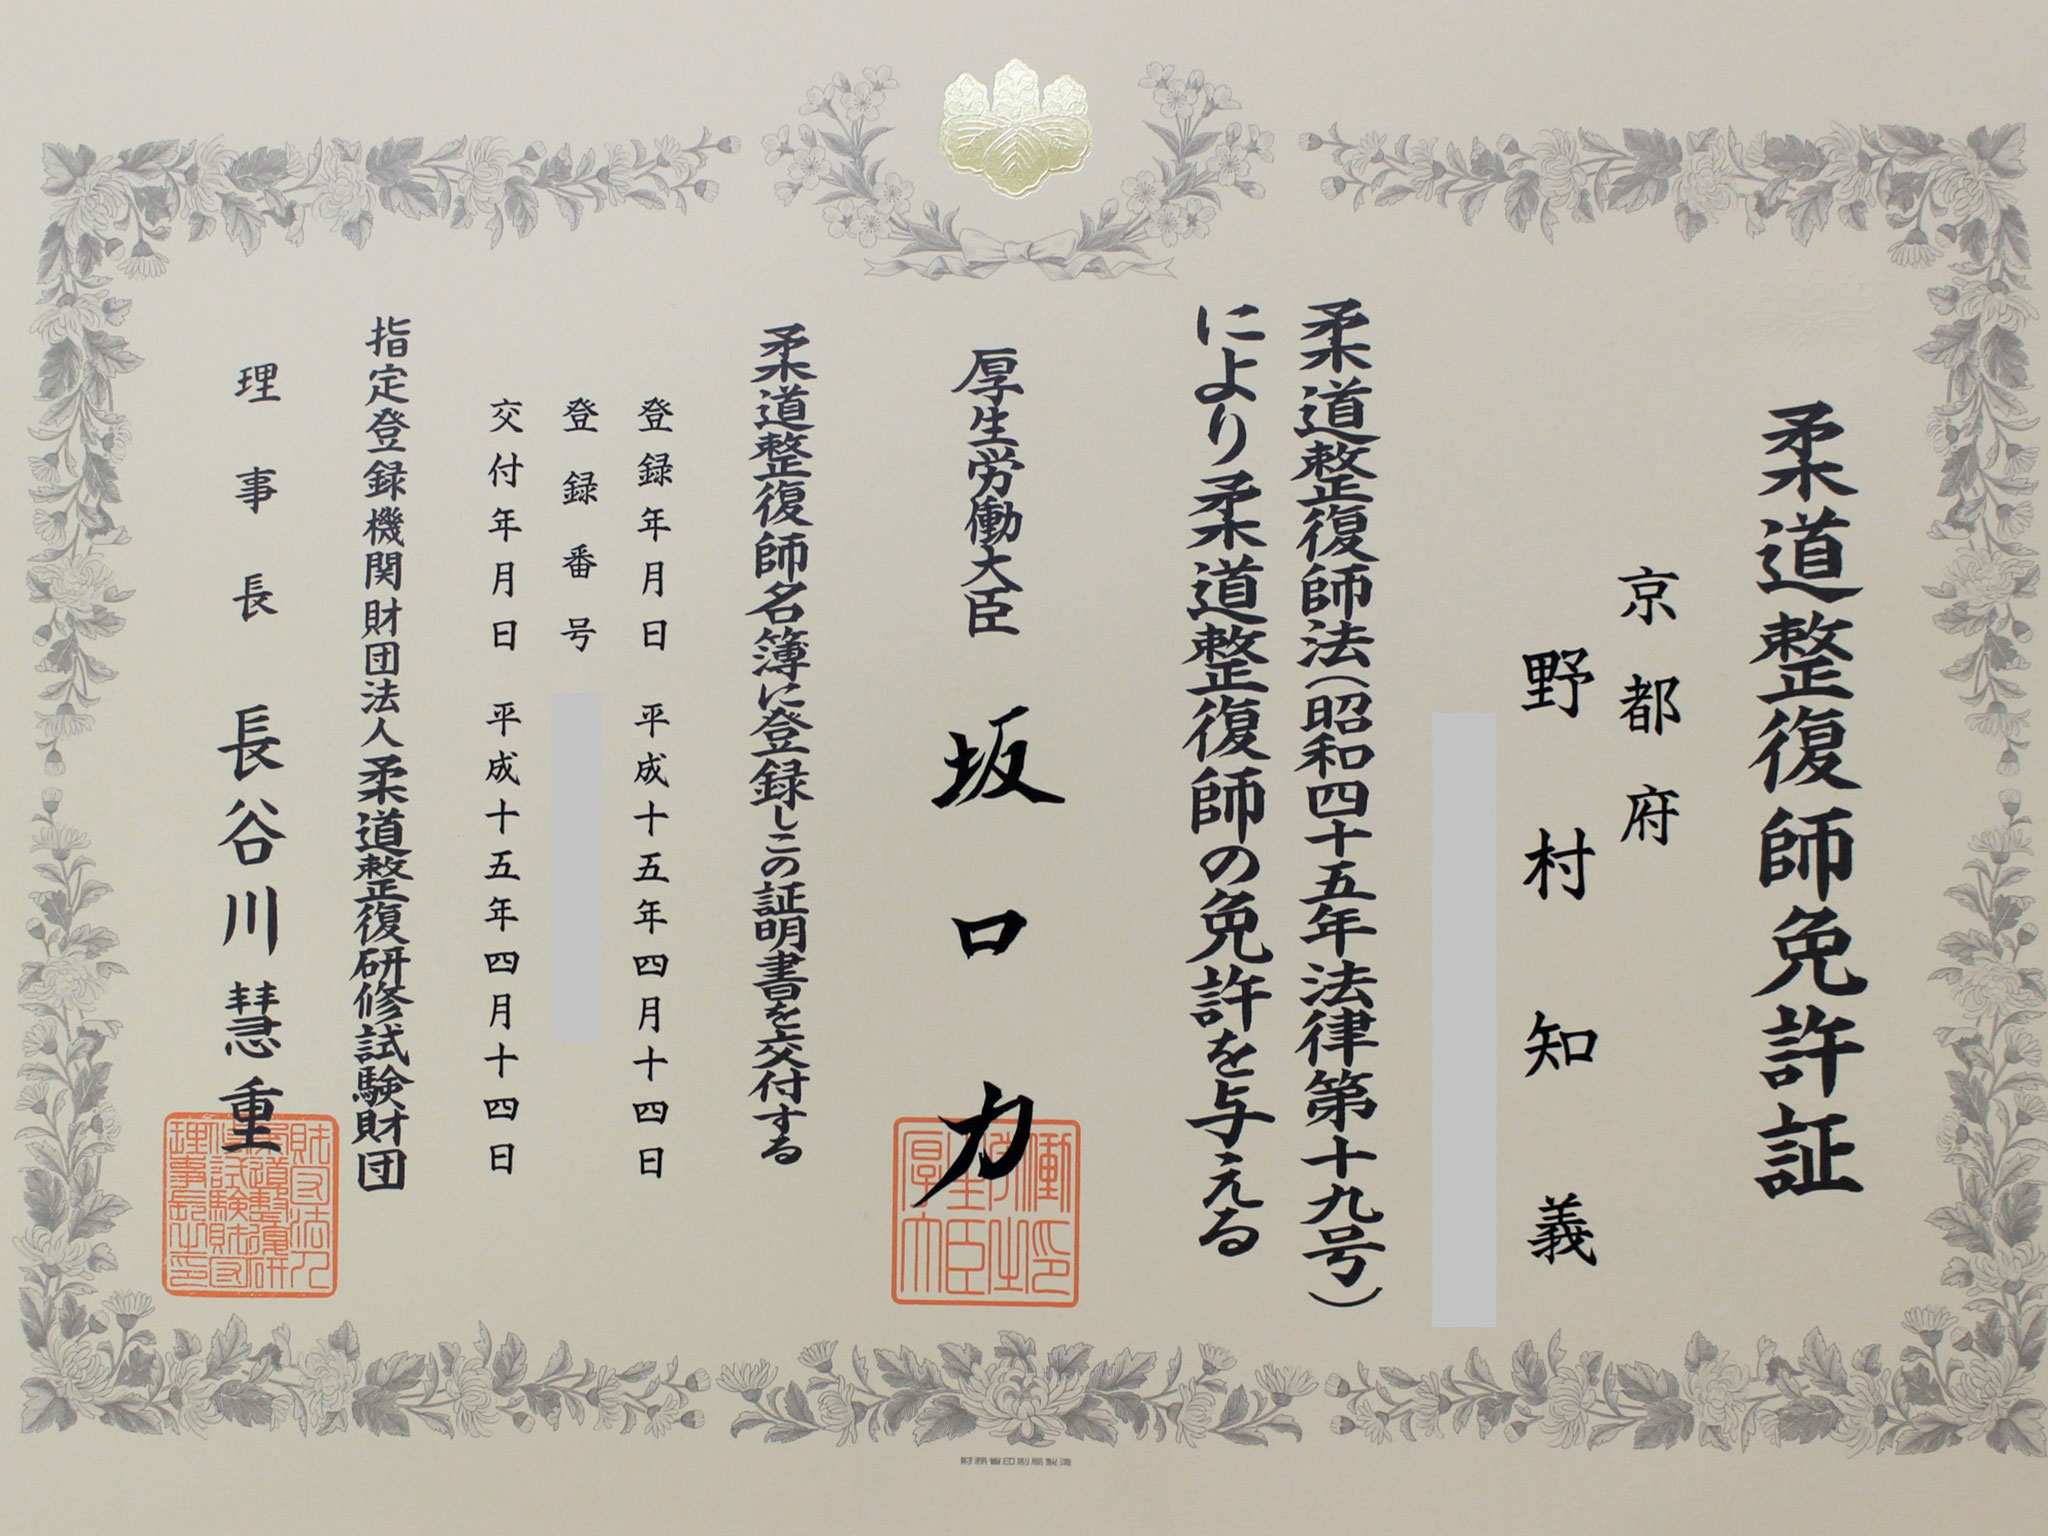 柔道整復師免許証
京都府
野村知義
柔道整復師法(昭和四十五年法律第十九号)
により柔道整復師の免許を与える
厚生労働大臣 坂口力
柔道整復師名簿に登録しこの証明書を交付する
登録年月日 平成十五年四月十四日
登録番号
交付年月日 平成十五年四月十四日
指定登録機関財団法人柔道整復研修試験財団
理事長 長谷川慧重
財務省印刷局製造